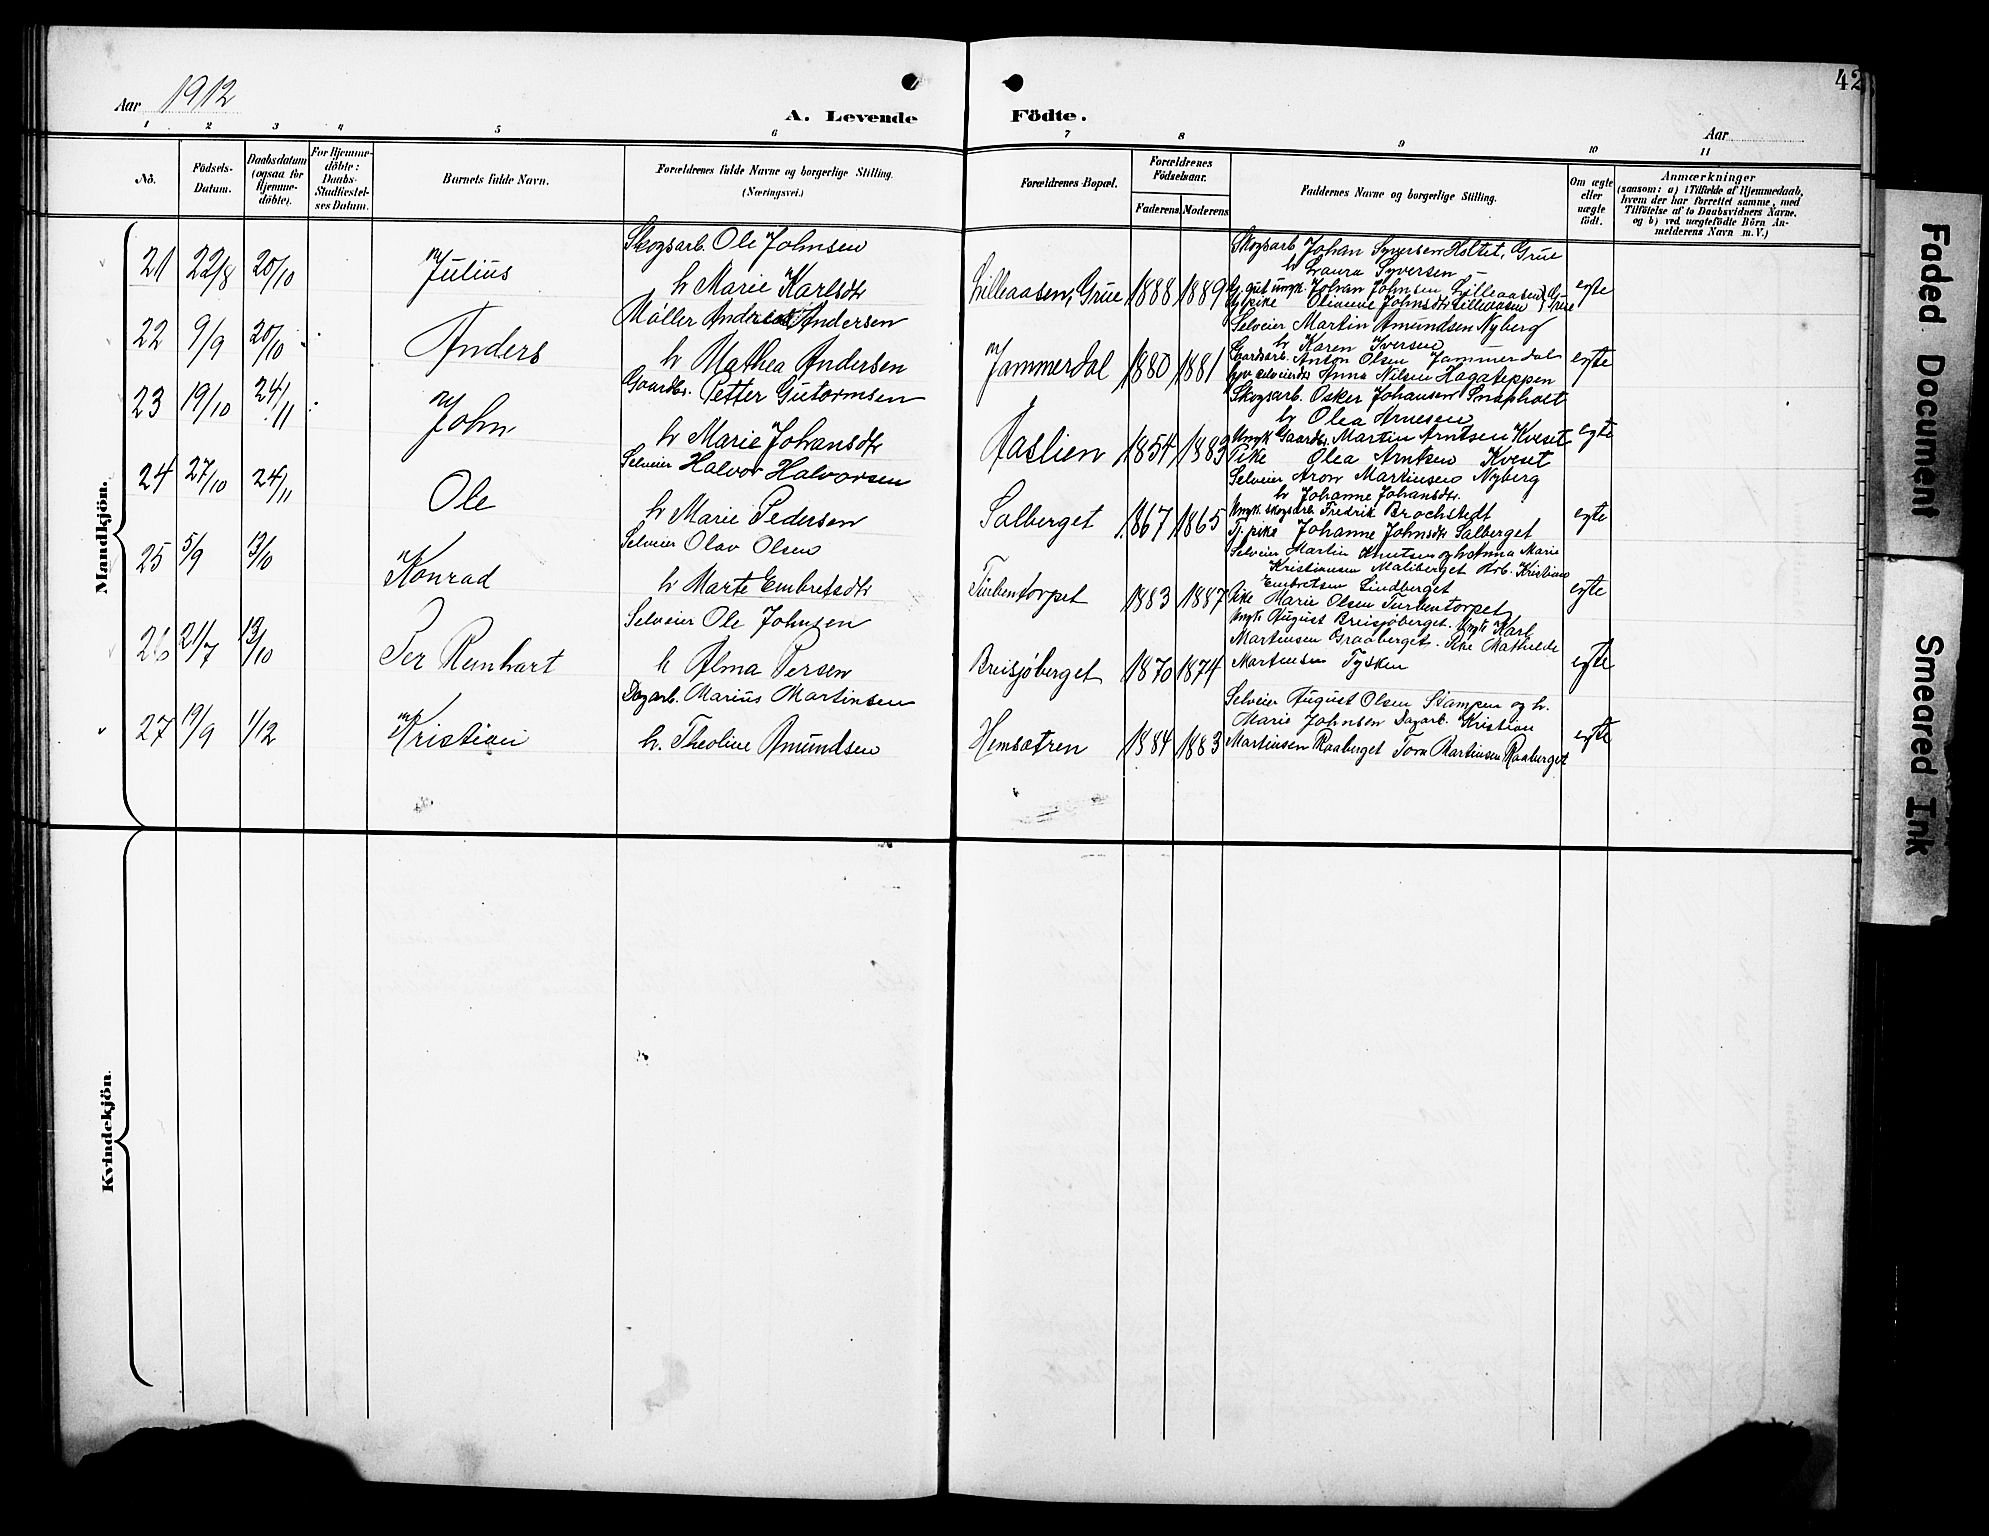 42
Aar 1912
A. Levende Födte.
Aar
1 2 3 4 5 6 7 8 9 10 11
No.
Födsels-Datum.
Daabsdatum (ogsaa for Hjemmedöbte).
For Hjemmedöbte: Daabs-Stadfæstelses Datum.
Barnets fulde Navn.
Forældrenes fulde Navne og borgerlige Stilling. (Næringsvei.)
Forældrenes Bopæl.
Forældrenes Födselsaar.
Faderens. Moderens.
Faddernes Navne og borgerlige Stilling.
Om ægte eller uægte födt.
Anmærkninger
(saasom: a) i Tilfælde af Hjemmedaab,
hvem der har forrettet samme, med
Tilföielse af to Daabsvidners Navne,
og b) ved uægtefödte Börn An-
melderens Navn m. V.)
Mandkjön.
21 22/8 20/10 Julius
Skogsarb. Ole Johnsen
h Marie Karlsdtr
Lilleaasen, Grue 1888 1889
Skogsarb Johan Syversen Holtet, Grue
h Laura Syversen
G. gut umyk. Johan Johnsen Lilleaasen
pike Oliane Johnsdtr Lilleaasen Grue
egte
22 9/9 20/10 Anders
Möller Andreas Andersen
h Mathea Andersen
Jammerdal 1880 1881
Selveier Martin Amundsen Nyberg
h Karen Iversen
Gaardarb. Anton Olsen Jammerdal
selveierdtr Anna Nilsen Hagateppen
egte
23 19/10 24/11 John
Gaardbr. Petter Gutormsen
h Marie Johansdtr
Aaslien 1854 1883
Skogsarb. Osker Johansen Snapholt
h Olea Arnesen
Umyk Gaardbr. Martin Arntsen Kveset
Pike Olea Arntsen Kveset
egte
24 27/10 24/11 Ole
Selveier Halvor Halvorsen
h Marie Pedersen
Salberget 1867 1865
Selveier Aron Martinsen Nyberg
h Johanne Johansdtr.
Umyk. skogsarb Fredrik Brochstedt
Tj. pike Johanne Johnsdtr Salberget
egte
25 5/9 13/10 Konrad
Selveier Olav Olsen
h Marte Embretsdtr
Turbentorpet 1883 1887
Selveier Martin Knutsen og h Anna Marie
Kristiansen Maliberget Arb. Kristian
Embretsen Lindberget
Pike Marie Olsen Turbentorpet
egte
26 21/7 13/10 Per Reinhart
Selveier Ole Johnsen
h Alma Persen
Breisjöberget 1870 1874
Umyk August Breisjöberget. Umyk Karl
Martinsen Graaberget. Pike Mathilde
Martinsen Tysken
egte
27 19/9 1/12 Kristian
Dagarb. Marius Martinsen
h. Theoline Amundsen
Hemsætren 1884 1883
Selveier August Olsen Stampen og h.
Marie Johnsen Dagarb. Kristian
Martinsen Raaberget Tora Martinsen Raaberget
egte
Kvindekjön.
Faded Document
Smeared Ink